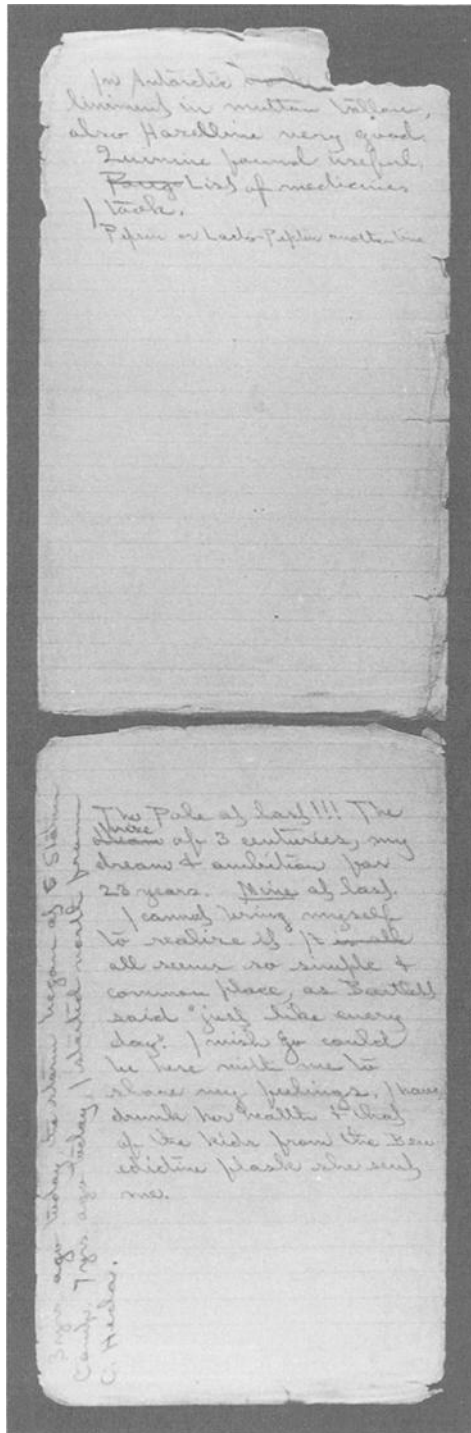 for Antarctic work
liniment in mutton tallow,
also Hazeline very good.
Quinine found useful.
Purg List of medicines
I took.
Pepsin or Lacto-Peptin
The Pole at last!!! The
prize of 3 centuries, my
dream & ambition for
23 years. Mine at last.
I cannot bring myself
to realize it. It
all seems so simple &
common place, as Bartlett
said "just like every
day." I wish Jo could
be here with me to
share my feelings. I have
drunk her health & that
of the kids from the Ben
edictine flask she sent
me.
3 yrs. ago today the storm began at Storm
Camp. 7 yrs ago today I started north from
C. Hecla.